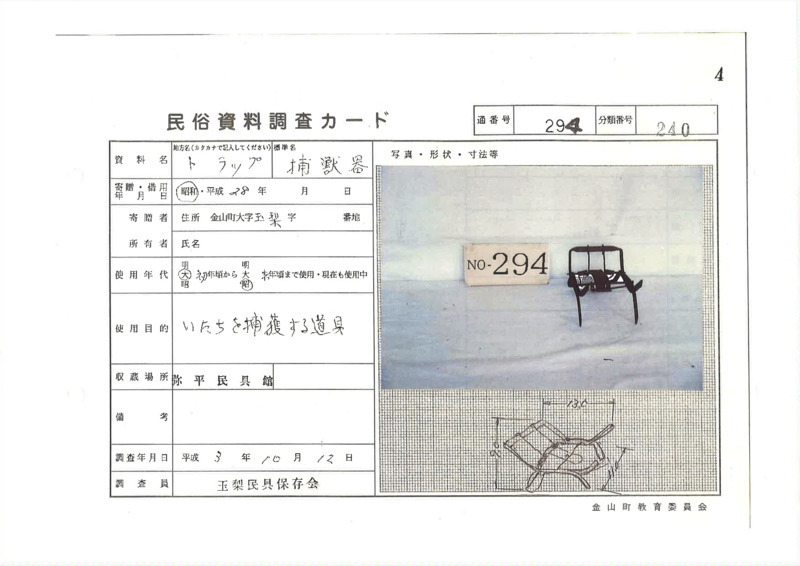 4
民俗資料調査カード
通番号 294 分類番号 240
資料名 地方名(カタカナで記入してください) トラップ 標準名 捕獣器
寄贈・借用年月日 昭和・平成 28年 月 日
寄贈者 住所 金山町大字玉梨字 番地
所有者 氏名
使用年代 明大昭 初年頃から 明大昭 末年頃まで使用・現在も使用中
使用目的 いたちを捕獲する道具
収蔵場所 弥平民具館
備考
調査年月日 平成 3年 10月 12日
調査員 玉梨民具保存会
写真・形状・寸法等
NO-294
13.0
9.0
金山町教育委員会